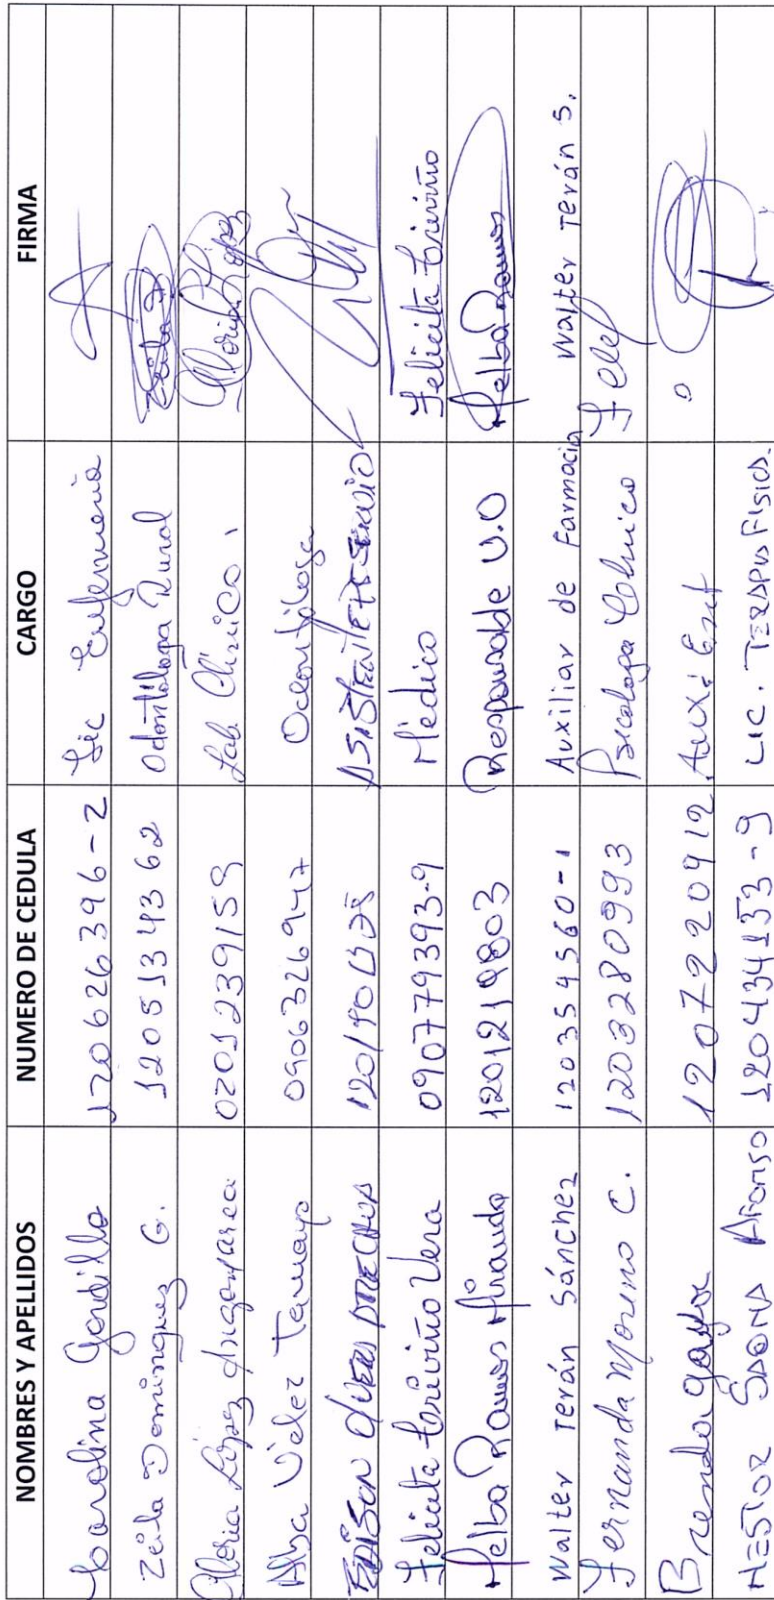 NOMBRES Y APELLIDOS NUMERO DE CEDULA CARGO FIRMA
Carolina Gordillo 120626396-2 Lic Enfermeria
Zeila Dominguez G. 1205134362 Odontóloga Rural Zeila D
Gloria López Angamarca 0201239159 Lab. Clinico. Gloria López
Alba Velez Tamayo 0906326947 Odontóloga
EDISON ASISTENTE DE SERVICIO
Felicita Triviño Vera 090779393-9 Médico Felicita Triviño
Melba Ramos Miranda 1201219803 Responsable U.O Melba Ramos
Walter Terán Sánchez 120354560-1 Auxiliar de Farmacia Walter Terán S.
Fernanda Moreno C. 1203280993 Psicologa Clinica
Brenda 1207220912 Aux. Enf
HESTOR Alfonso 120434153-9 LIC. TERAPIA FISICA.